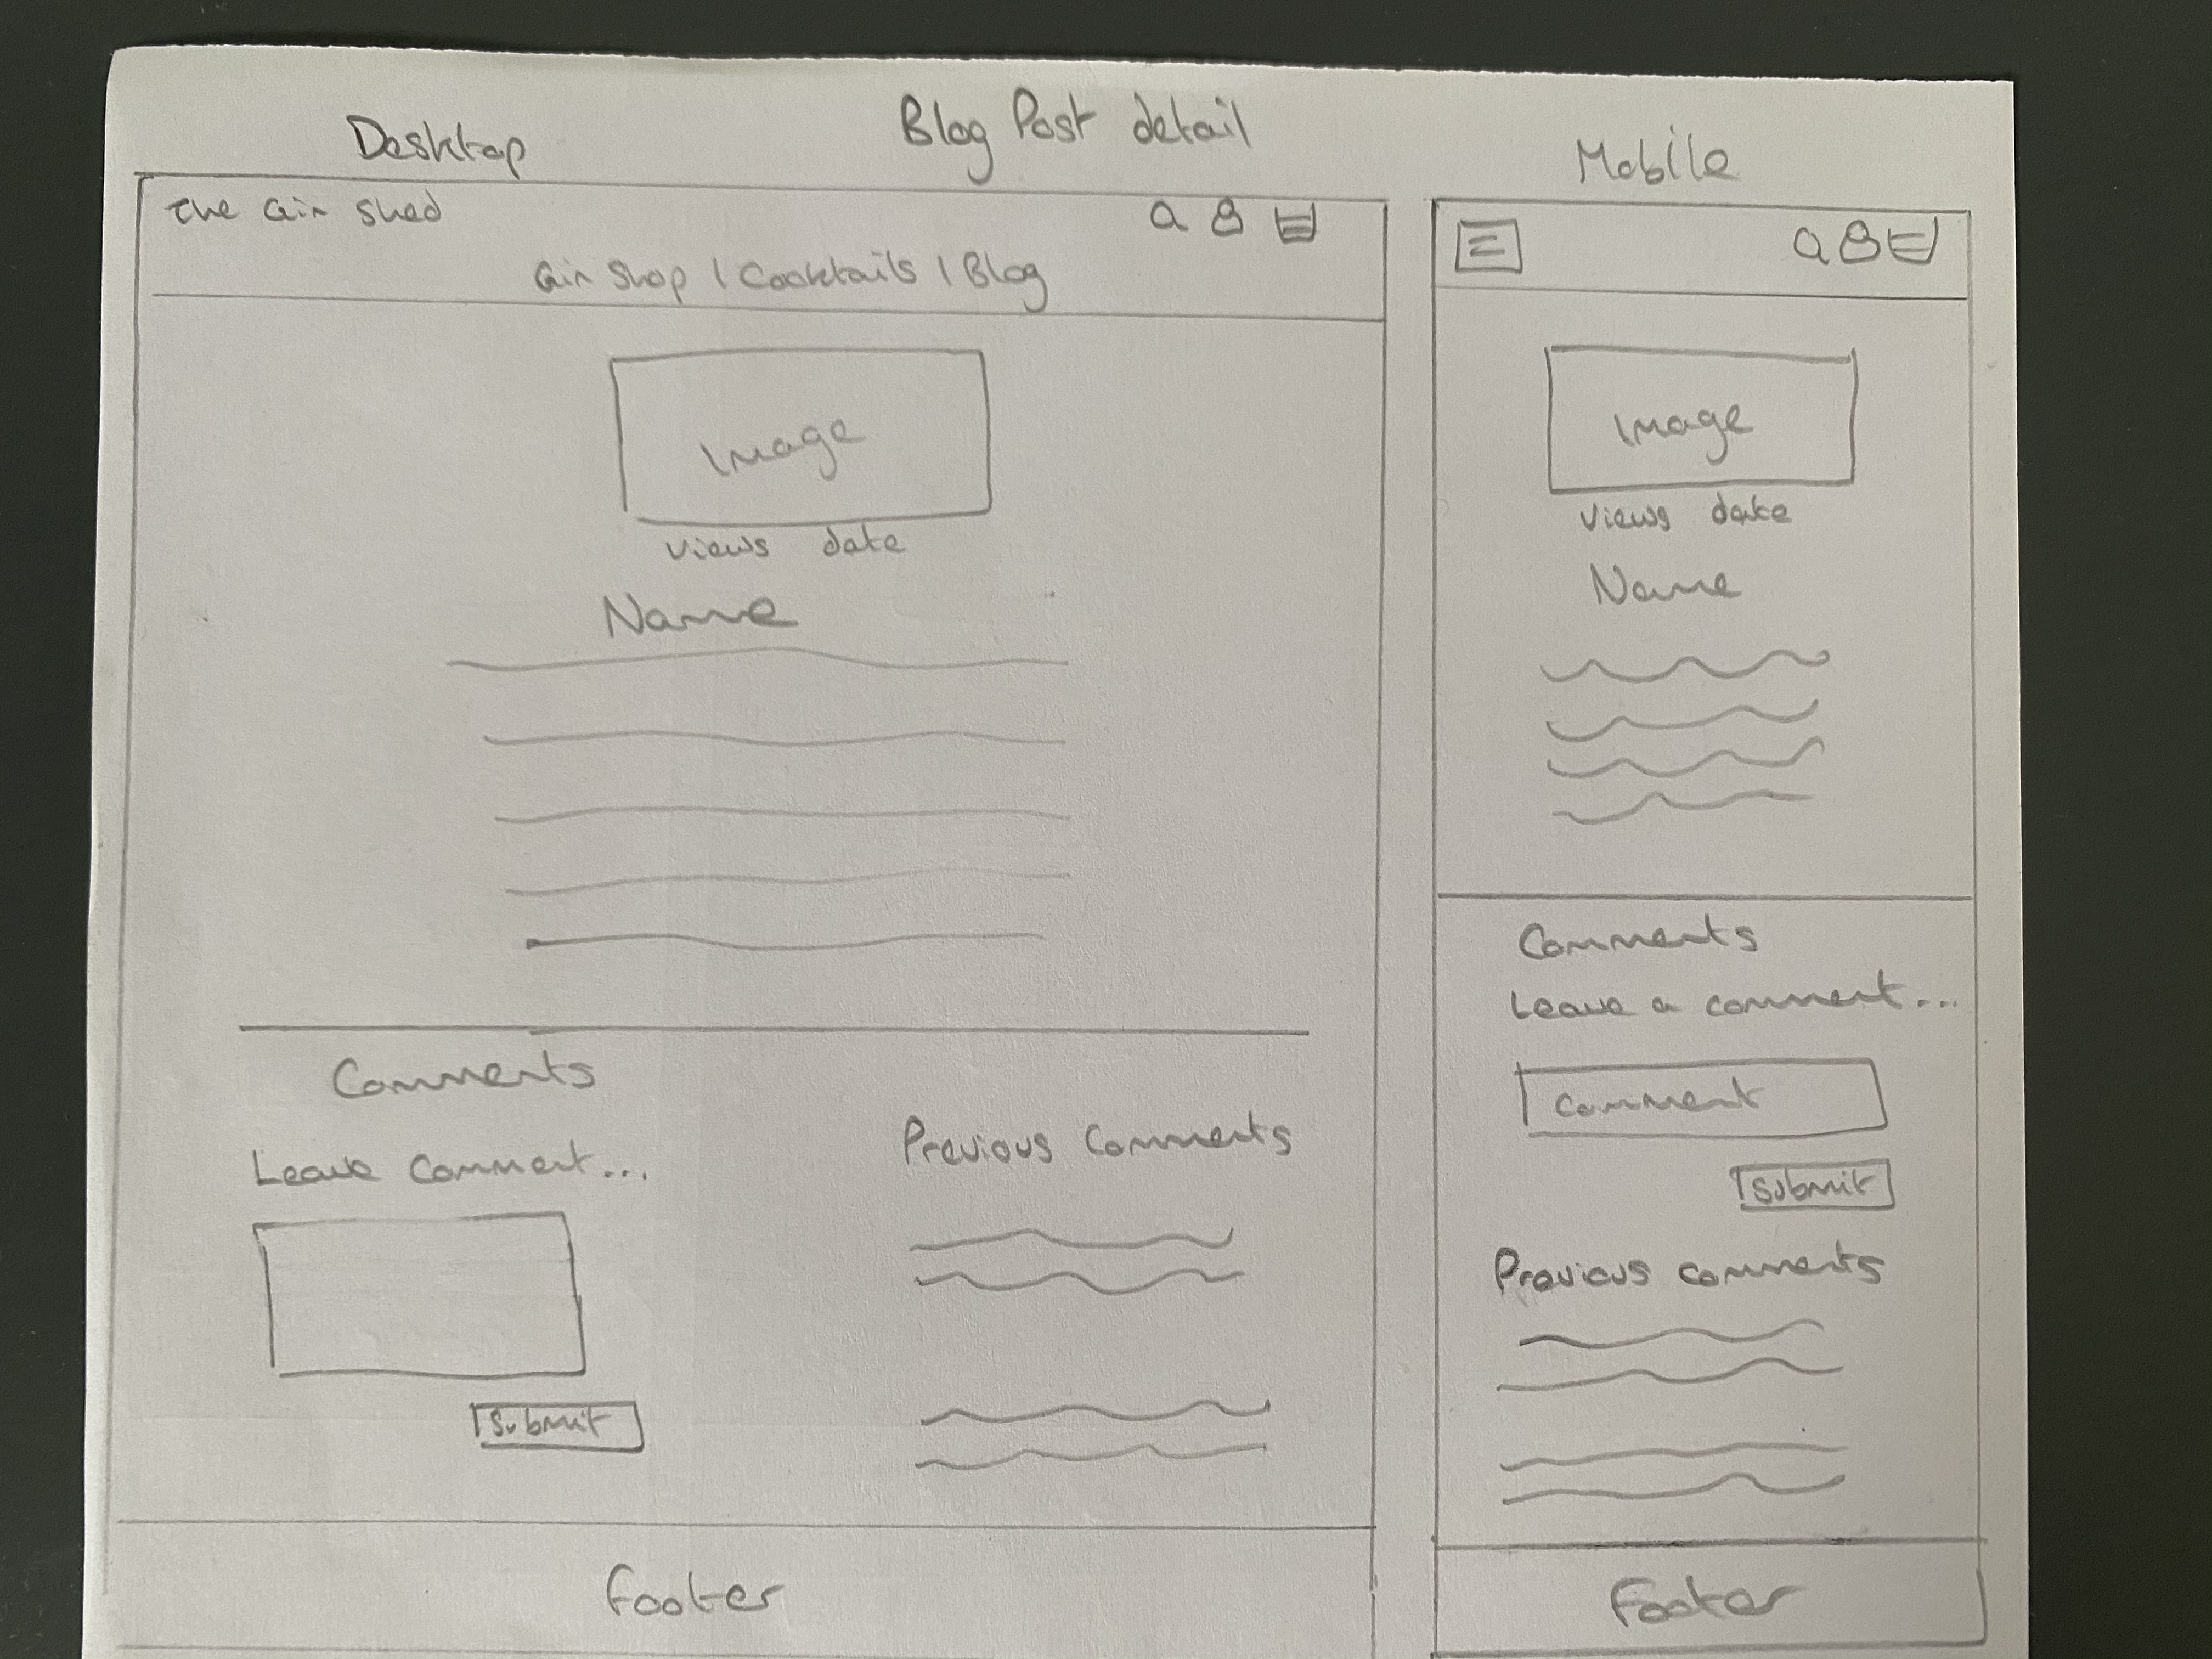 Blog Post detail
Desktop
The Gin Shed
Gin Shop | Cocktails | Blog
Image
views date
Name
Comments
Leave Comment...
Submit
Previous Comments
Footer
Mobile
Image
views date
Name
Comments
Leave a comment...
Comment
Submit
Previous comments
Footer